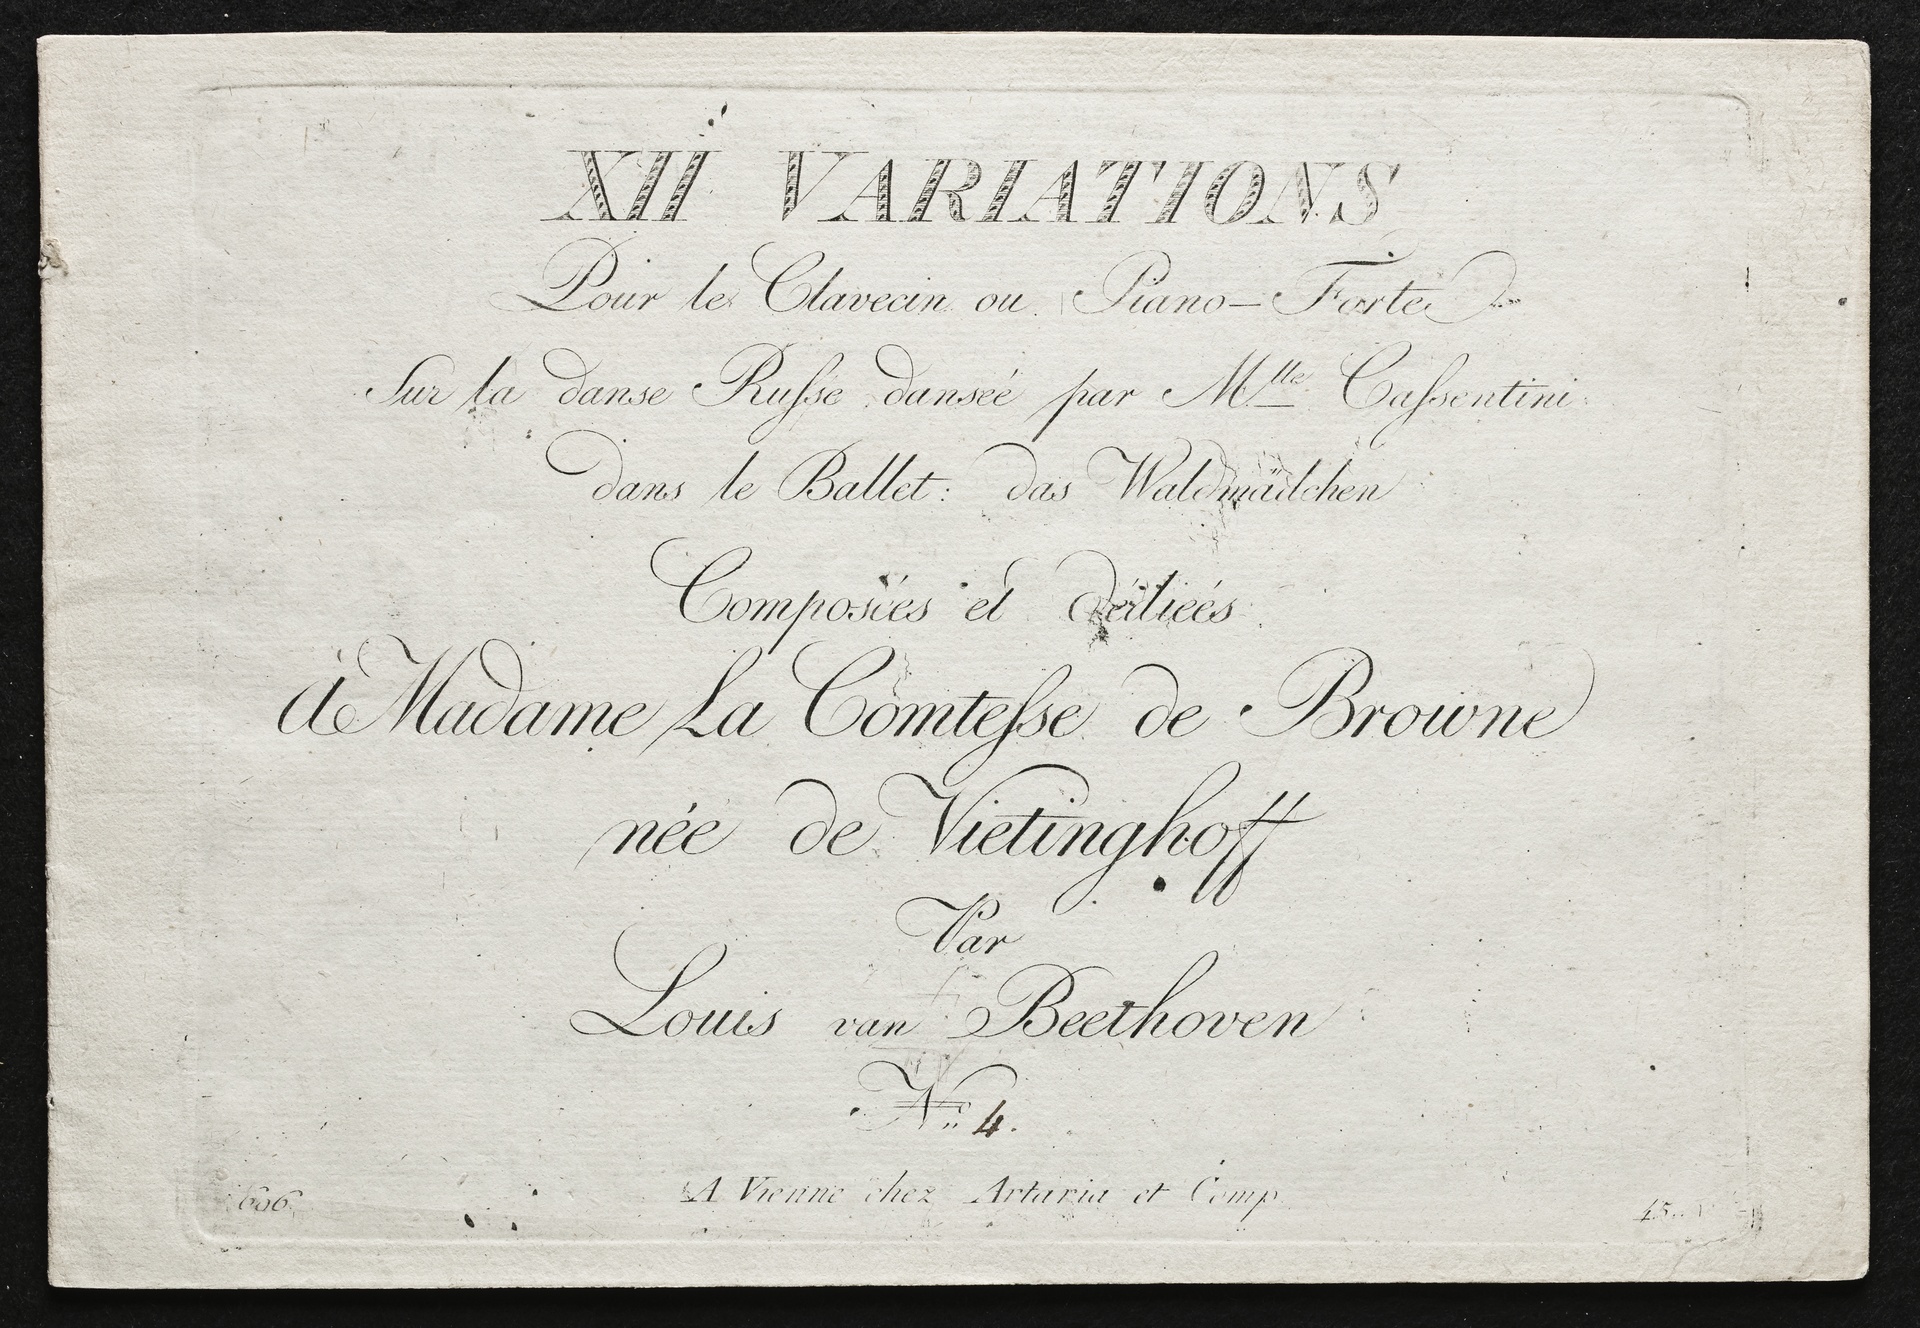 XII VARIATIONS
Pour le Clavecin ou Piano-Forte
Sur la danse Ruſse danseé par Mlle Caſsentini
dans le Ballet: das Waldmädchen
Composées et dédieés
à Madame La Comteſse de Browne
née de Vietinghoff
Par
Louis van Beethoven
No 4.
A Vienne chez Artaria et Comp.
606